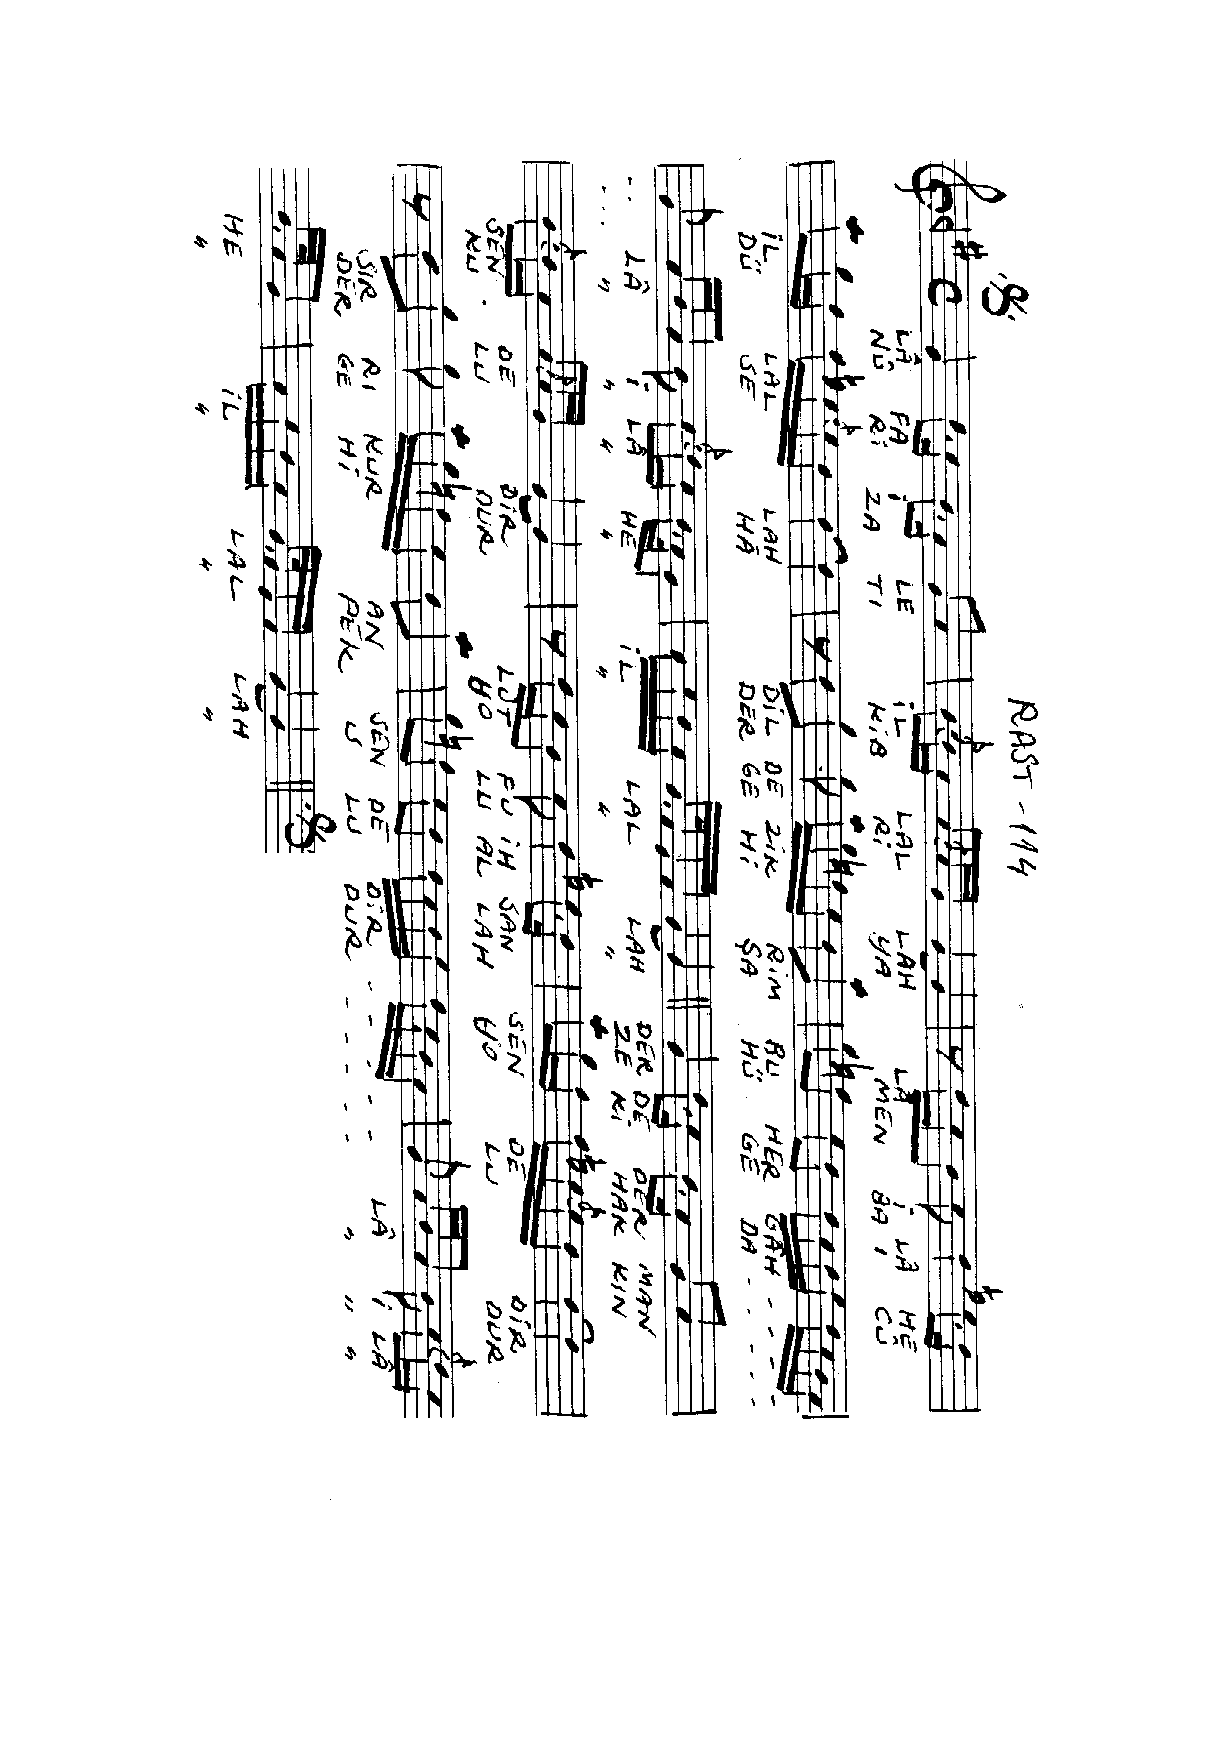 RAST-114
LÂ FA İ LE İL LAL LAH LÂ İ LÂ HE
NÛ Rİ ZA Tİ KİB Rİ YA MEN BA I CÛ
İL LAL LAH DİL DE ZİK RİM BU HER GÂH - - - -
DÜ SE HÂ DER GE Hİ ŞA HÜ GE DA - - - -
- - LÂ İ LÂ HE İL LAL LAH DER DE DER MAN
- - - " " " " " " " ZE Kİ HAK KIN
SEN DE DİR LÜT FU İH SAN SEN DE DİR
KU LU DUR HO LU AL LAH HO LU DUR
SIR RI KUR AN SEN DE DİR - - - - LÂ İ LÂ
DER GE Hİ PÊK U LU DUR - - - - " " "
HE İL LAL LAH
" " " "